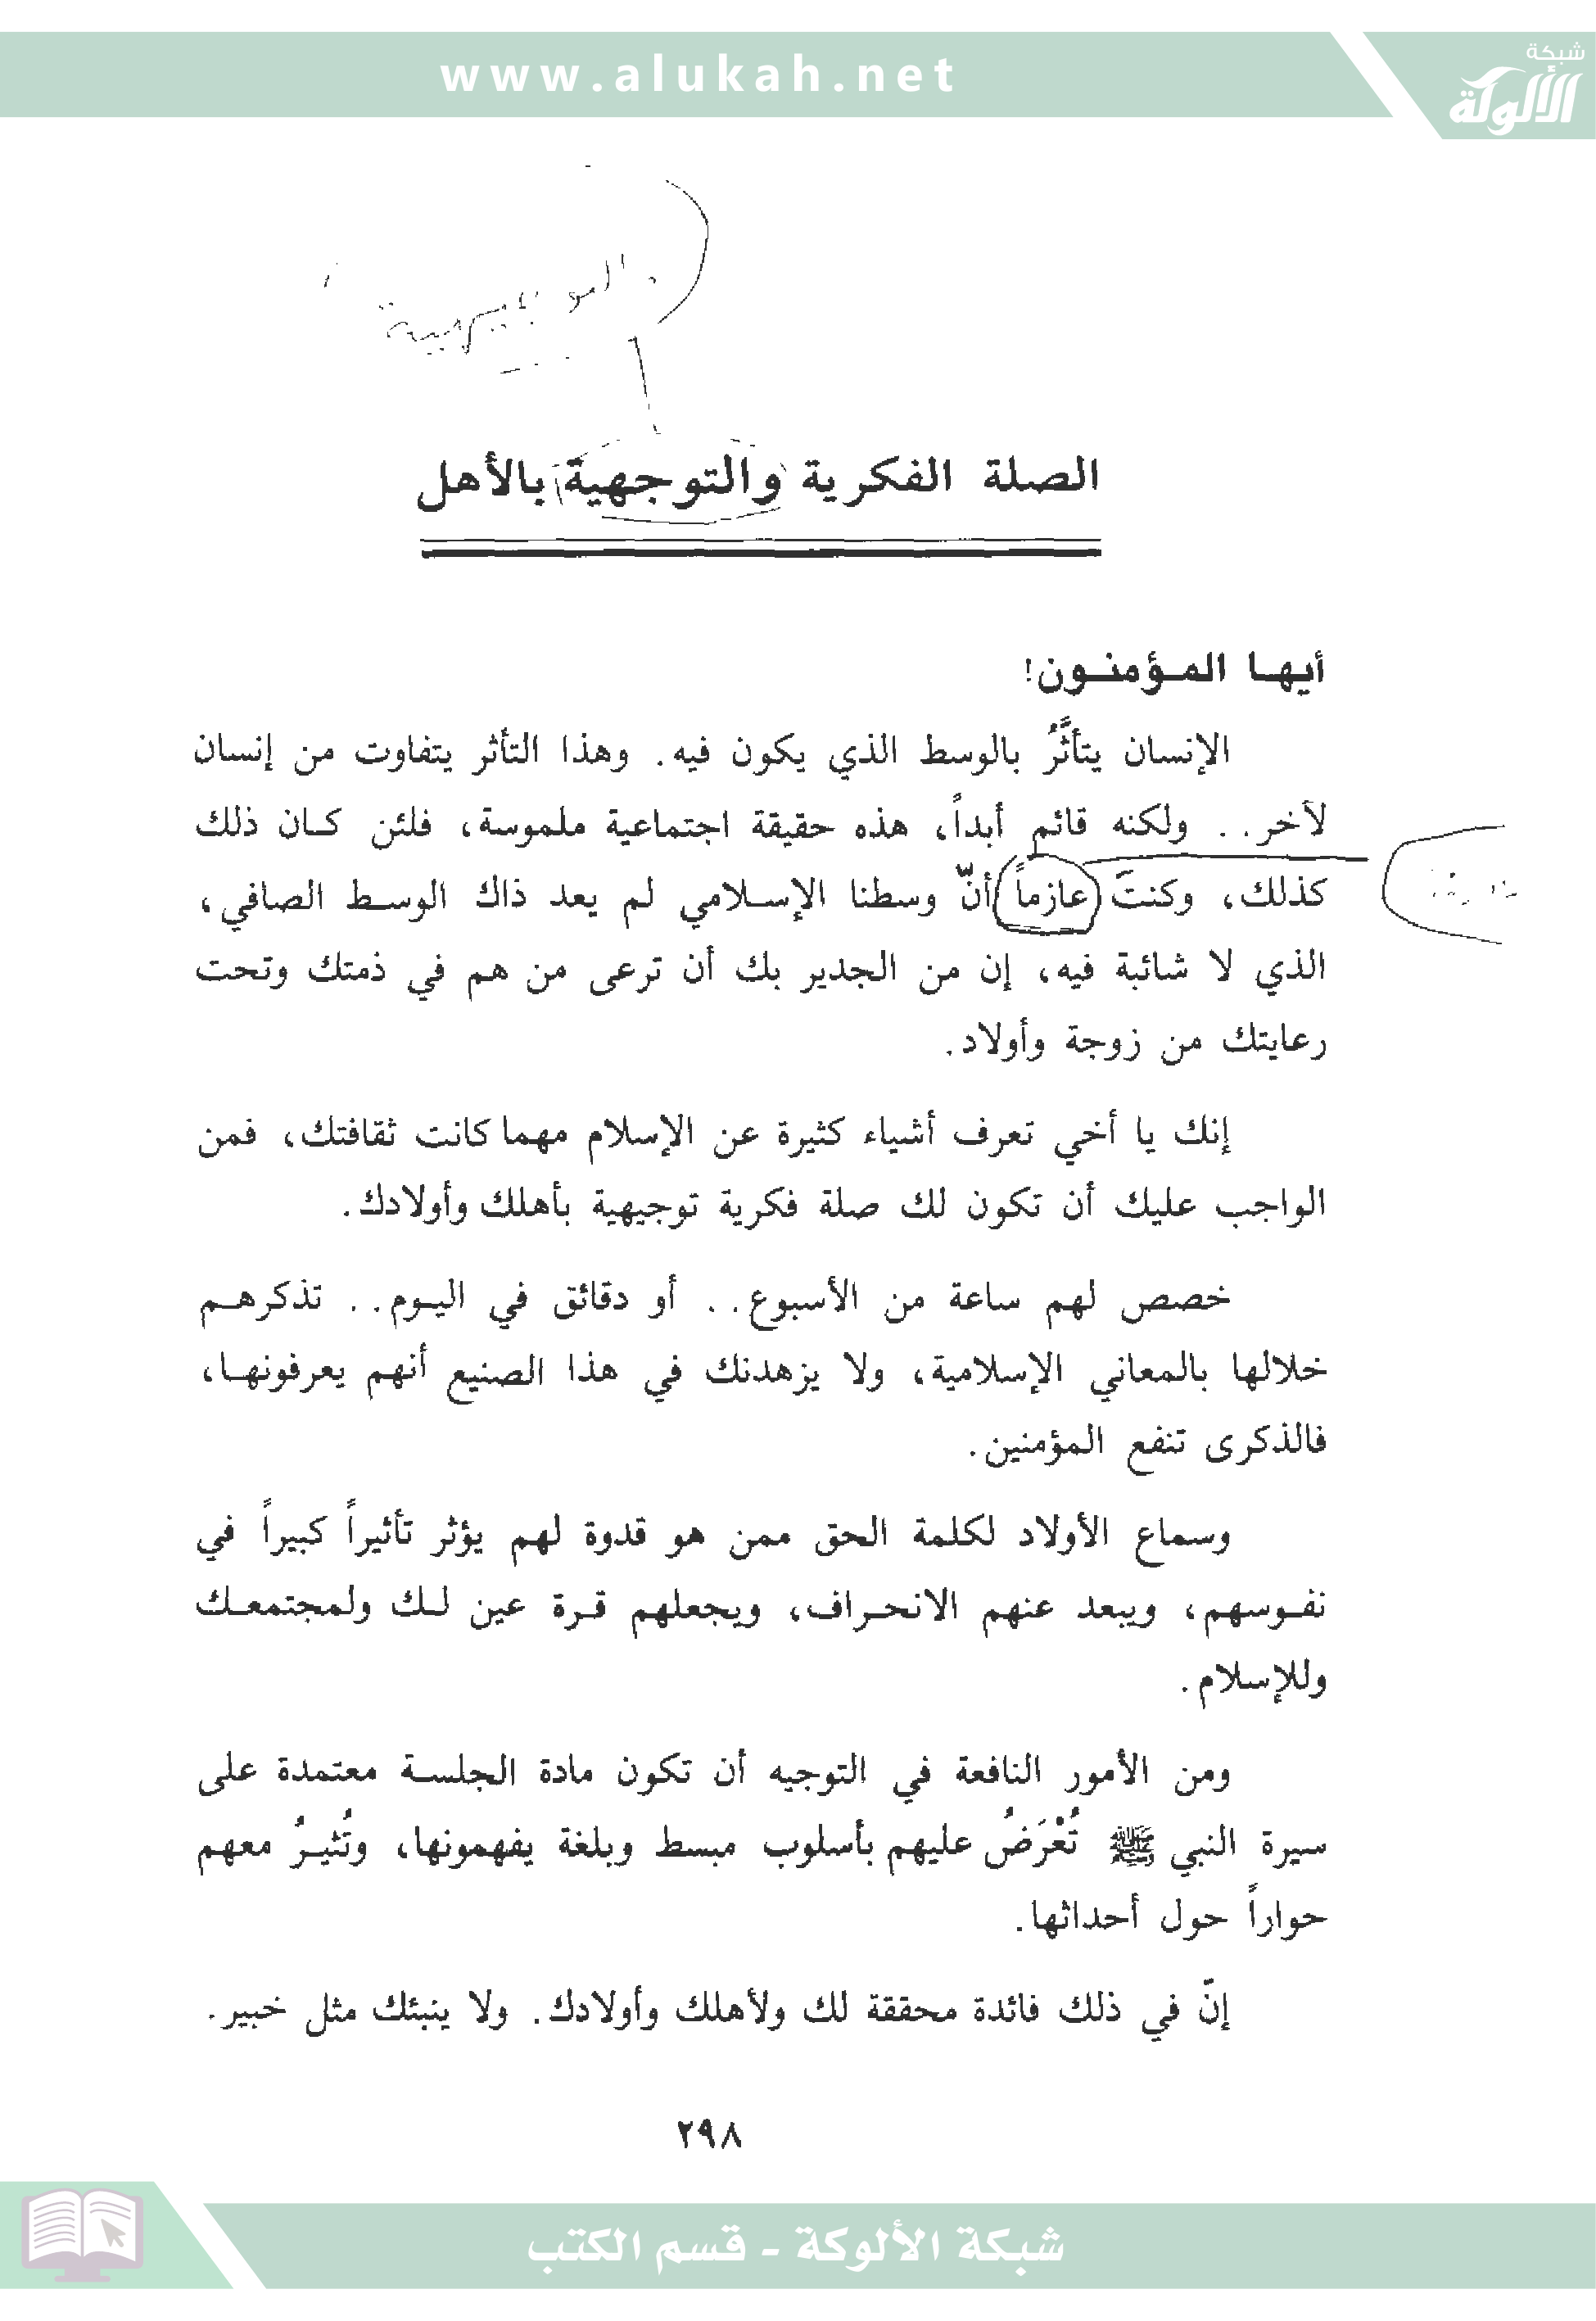 www.alukah.net
شبكة
الألوكة
الصلة الفكرية والتوجهية بالأهل
أيهـا المـؤمنـون!
الإنسان يتأثَّرُ بالوسط الذي يكون فيه. وهذا التأثر يتفاوت من إنسان
لآخر.. ولكنه قائم أبداً، هذه حقيقة اجتماعية ملموسة، فلئن كـان ذلك
كذلك، وكنتَ عازماً أنّ وسطنا الإسـلامي لم يعد ذاك الوسـط الصافي،
الذي لا شائبة فيه، إن من الجدير بك أن ترعى من هم في ذمتك وتحت
رعايتك من زوجة وأولاد.
إنك يا أخي تعرف أشياء كثيرة عن الإسلام مهما كانت ثقافتك، فمن
الواجب عليك أن تكون لك صلة فكرية توجيهية بأهلك وأولادك.
خصص لهم ساعة من الأسبوع.. أو دقائق في اليـوم.. تذكرهـم
خلالها بالمعاني الإسلامية، ولا يزهدنك في هذا الصنيع أنهم يعرفونهـا،
فالذكرى تنفع المؤمنين.
وسماع الأولاد لكلمة الحق ممن هو قدوة لهم يؤثر تأثيراً كبيراً في
نفـوسهم، ويبعد عنهم الانحـراف، ويجعلهم قـرة عين لـك ولمجتمعـك
وللإسلام.
ومن الأمور النافعة في التوجيه أن تكون مادة الجلسـة معتمدة على
سيرة النبي ﷺ تُعْرَضُ عليهم بأسلوب مبسط وبلغة يفهمونها، وتُثيـرُ معهم
حواراً حول أحداثها.
إنّ في ذلك فائدة محققة لك ولأهلك وأولادك. ولا ينبئك مثل خبير.
٢٩٨
شبكة الألوكة - قسم الكتب